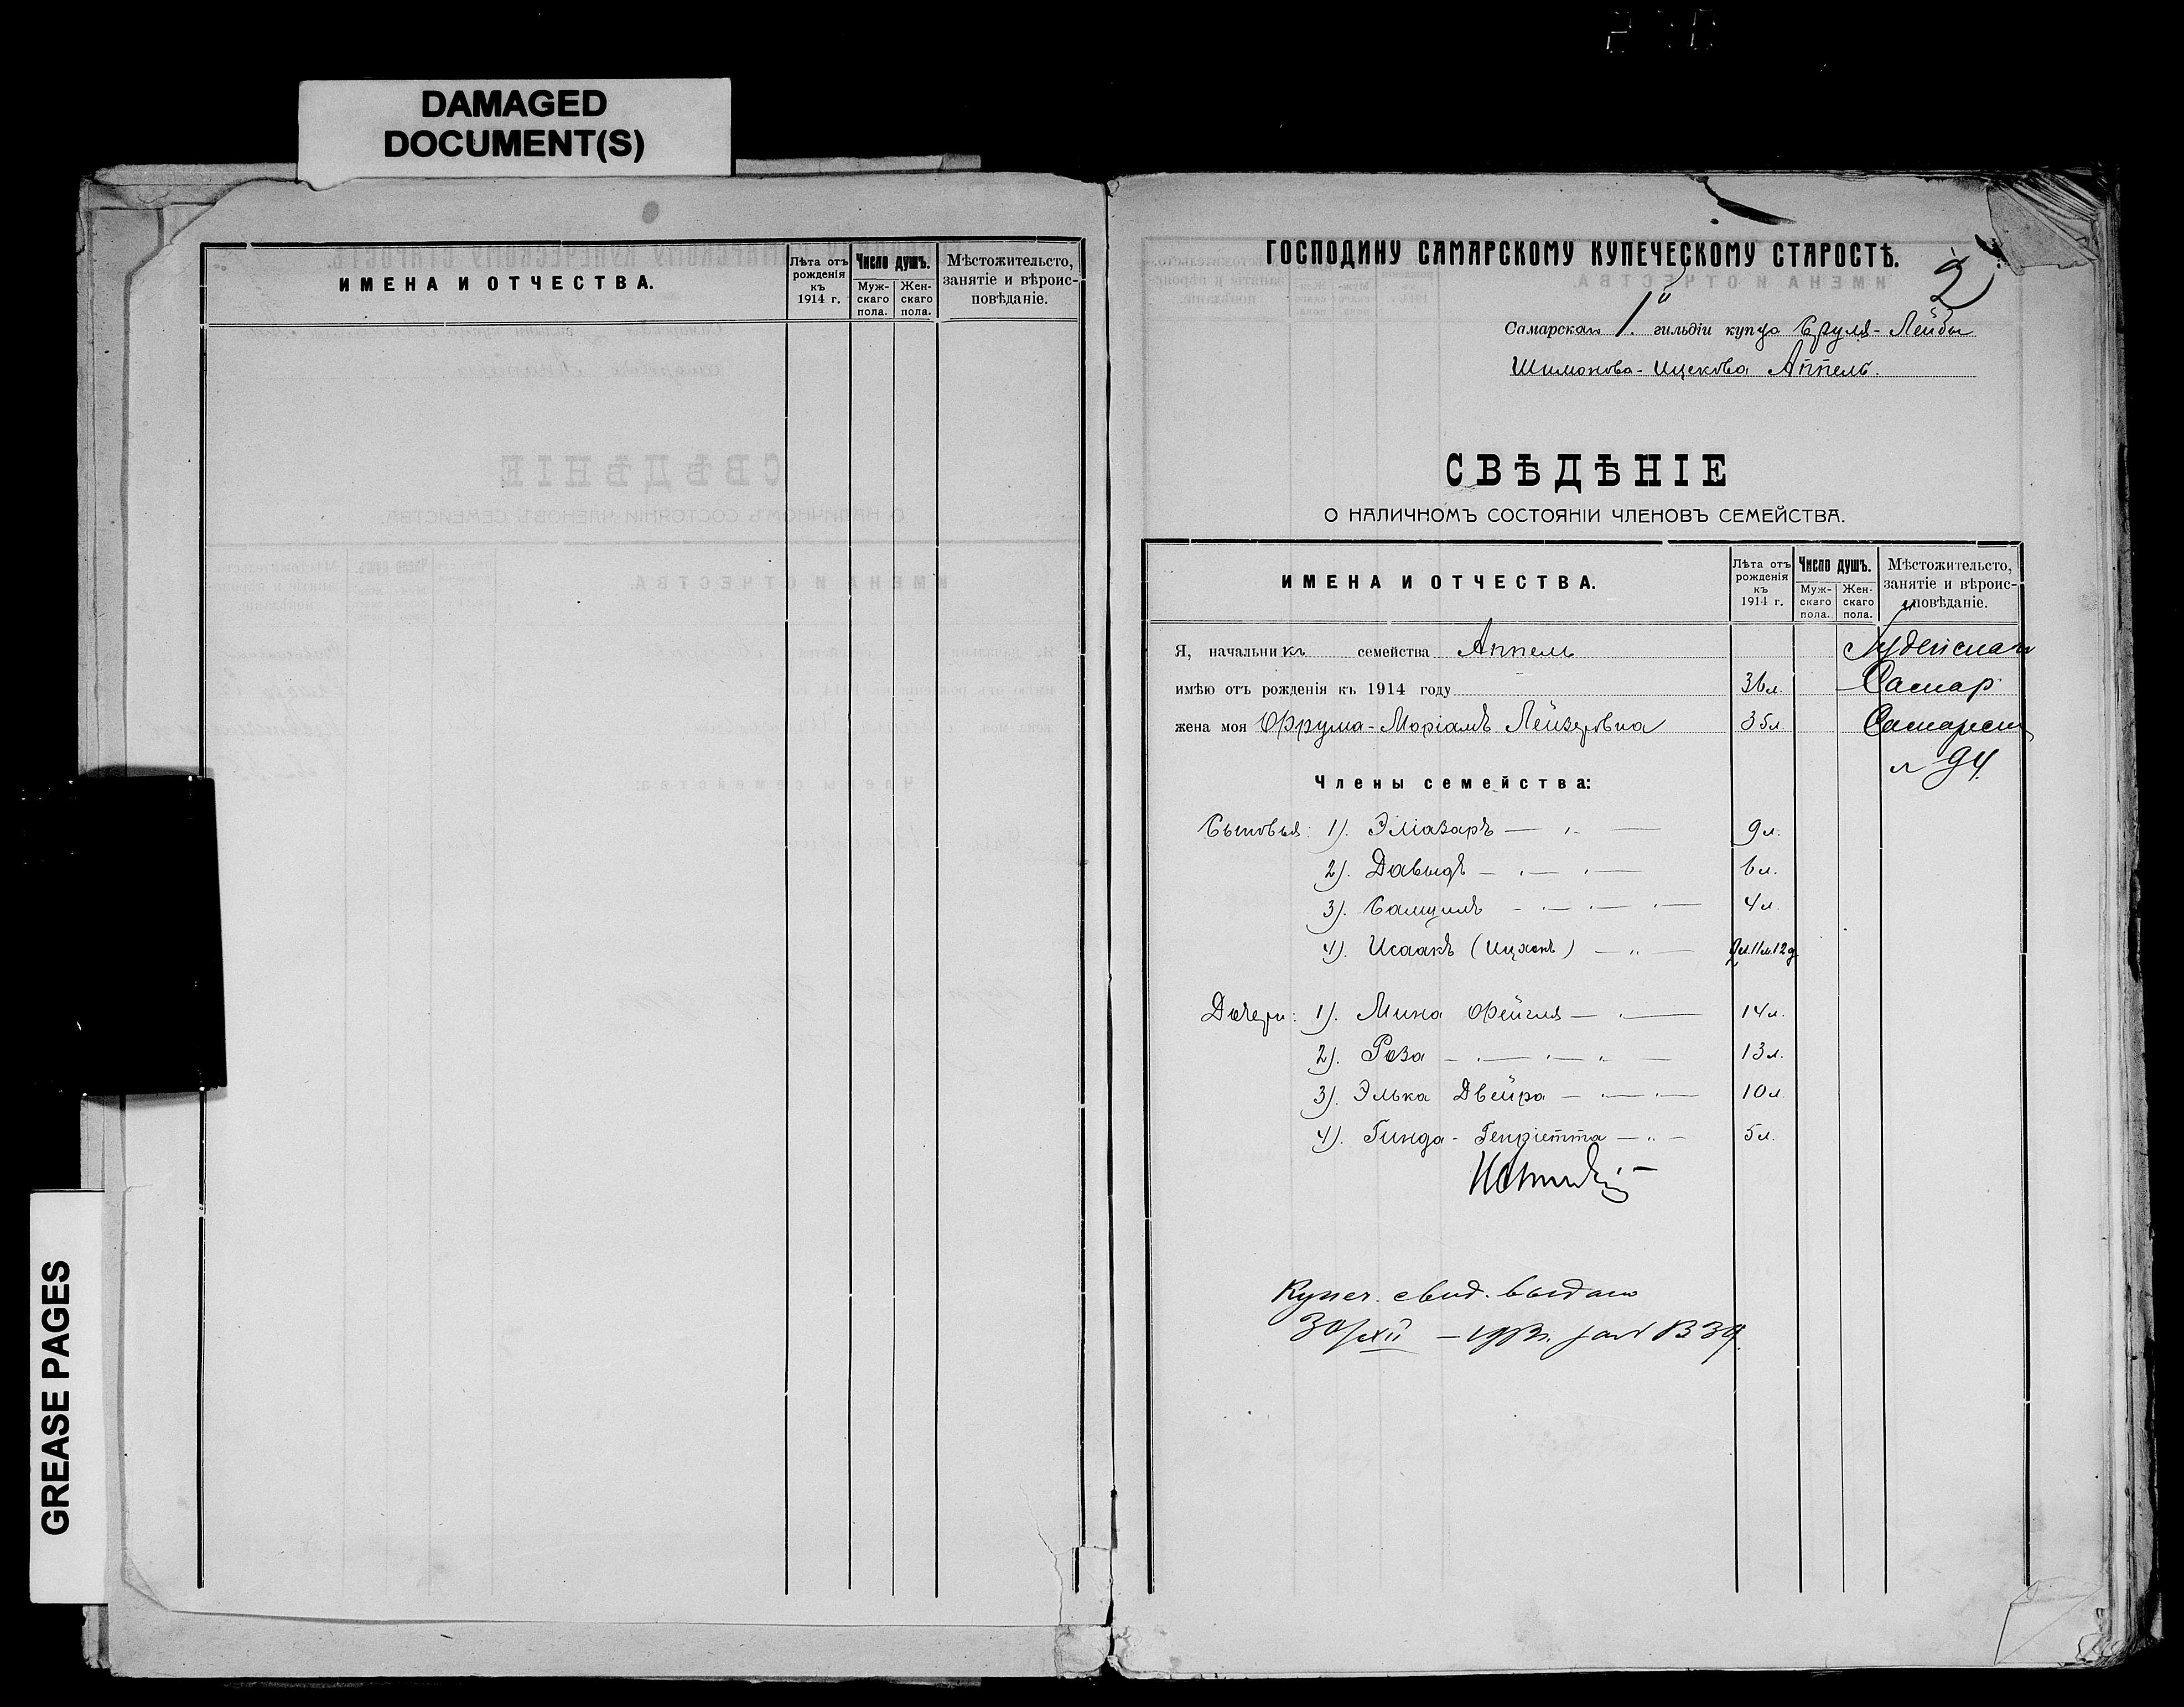 DAMAGED
DOCUMENT(S)
GREASE PAGES
ИМЕНА И ОТЧЕСТВА.
Лѣта отъ рожденія къ 1914 г.
Число душъ.
Муж-скаго пола.
Жен-скаго пола.
Мѣстожительсто, занятіе и вѣроис-повѣданіе.
ГОСПОДИНУ САМАРСКОМУ КУПЕЧЕСКОМУ СТАРОСТѢ.
2
Самарскаго 1й гильдіи купца Сруля-Лейбы
Шимонова-Ицкова Аппель.
СВѢДѢНІЕ
О НАЛИЧНОМЪ СОСТОЯНІИ ЧЛЕНОВЪ СЕМЕЙСТВА.
ИМЕНА И ОТЧЕСТВА.
Лѣта отъ рожденія къ 1914 г.
Число душъ.
Муж-скаго пола.
Жен-скаго пола.
Мѣстожительсто, занятіе и вѣроис-повѣданіе.
Я, начальникъ семейства Аппель
имѣю отъ рожденія къ 1914 году 36 л. Самар
жена моя Фрума-Маріамъ Лейзеровна 35 л.
94
Члены семейства:
Сыновья: 1). Эліазаръ — 9 л.
2). Давыдъ — 6 л.
3). Самуилъ — 4 л.
4). Исаакъ (Ицхокъ) — 11 м. 12 д.
Дочери: 1). Мина Фейгля — 14 л.
2). Роза — 13 л.
3). Элька Двейра — 10 л.
4). Гинда-Генріетта — 5 л.
Купеч. свид. выдано
30/XII